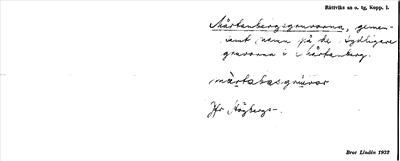 Rättviks sn o. tg, Kopp. l.
Mårtanbergsgruvorna, gemen-
samt namn på de sydligare
gruvorna i Mårtanberg.
màrtabas-gruvor
Jfr Högbergs-.
Bror Lindén 1932